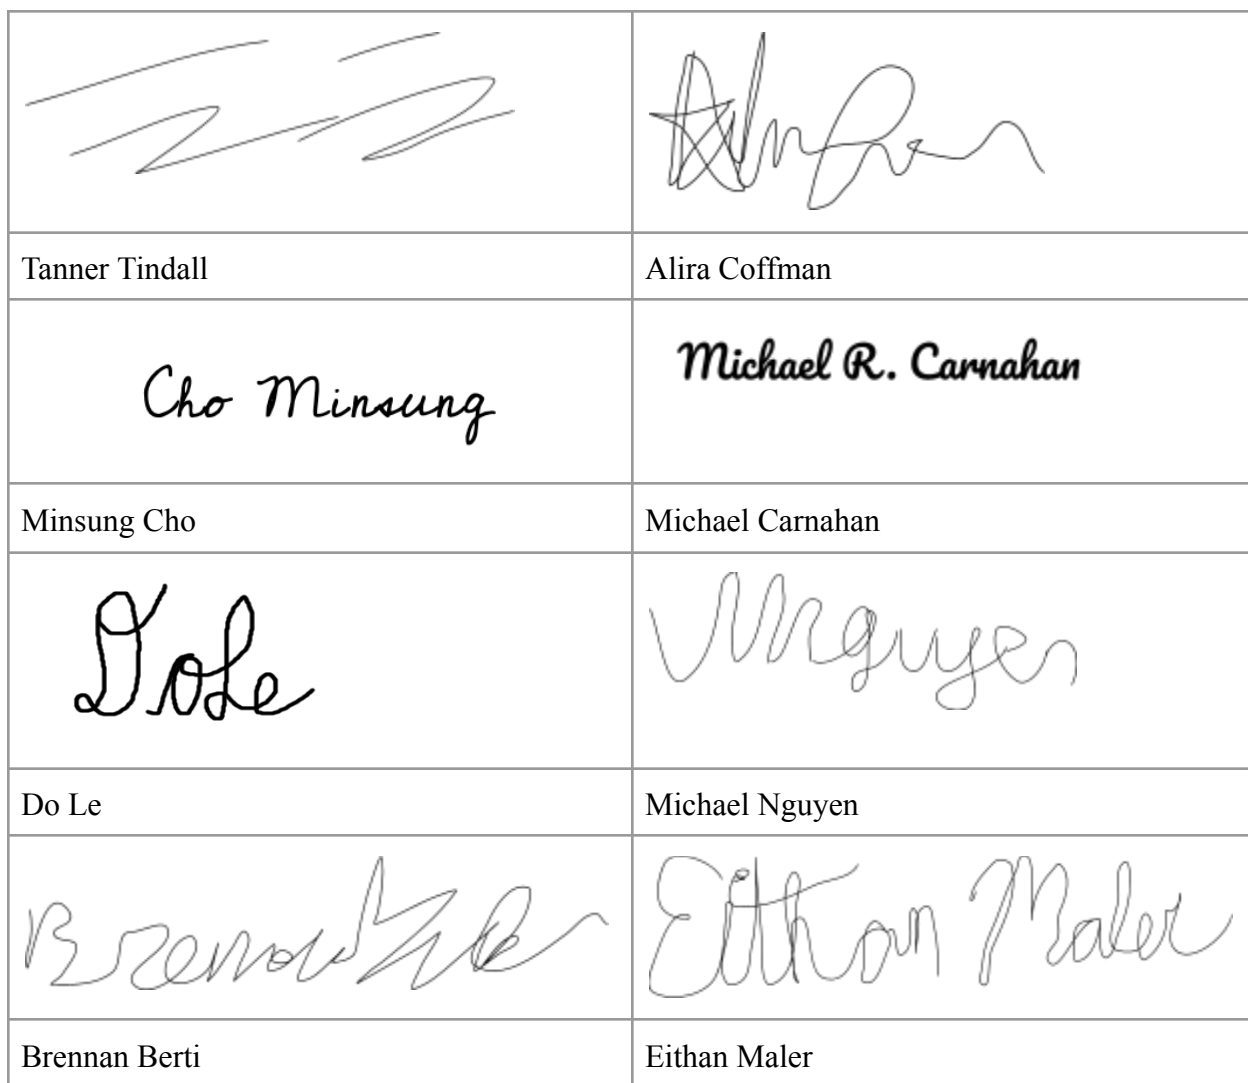 Tanner Tindall
Alira Coffman
Cho Minsung
Michael R. Carnahan
Minsung Cho
Michael Carnahan
Do Le
Nguyen
Do Le
Michael Nguyen
Eithan Maler
Brennan Berti
Eithan Maler